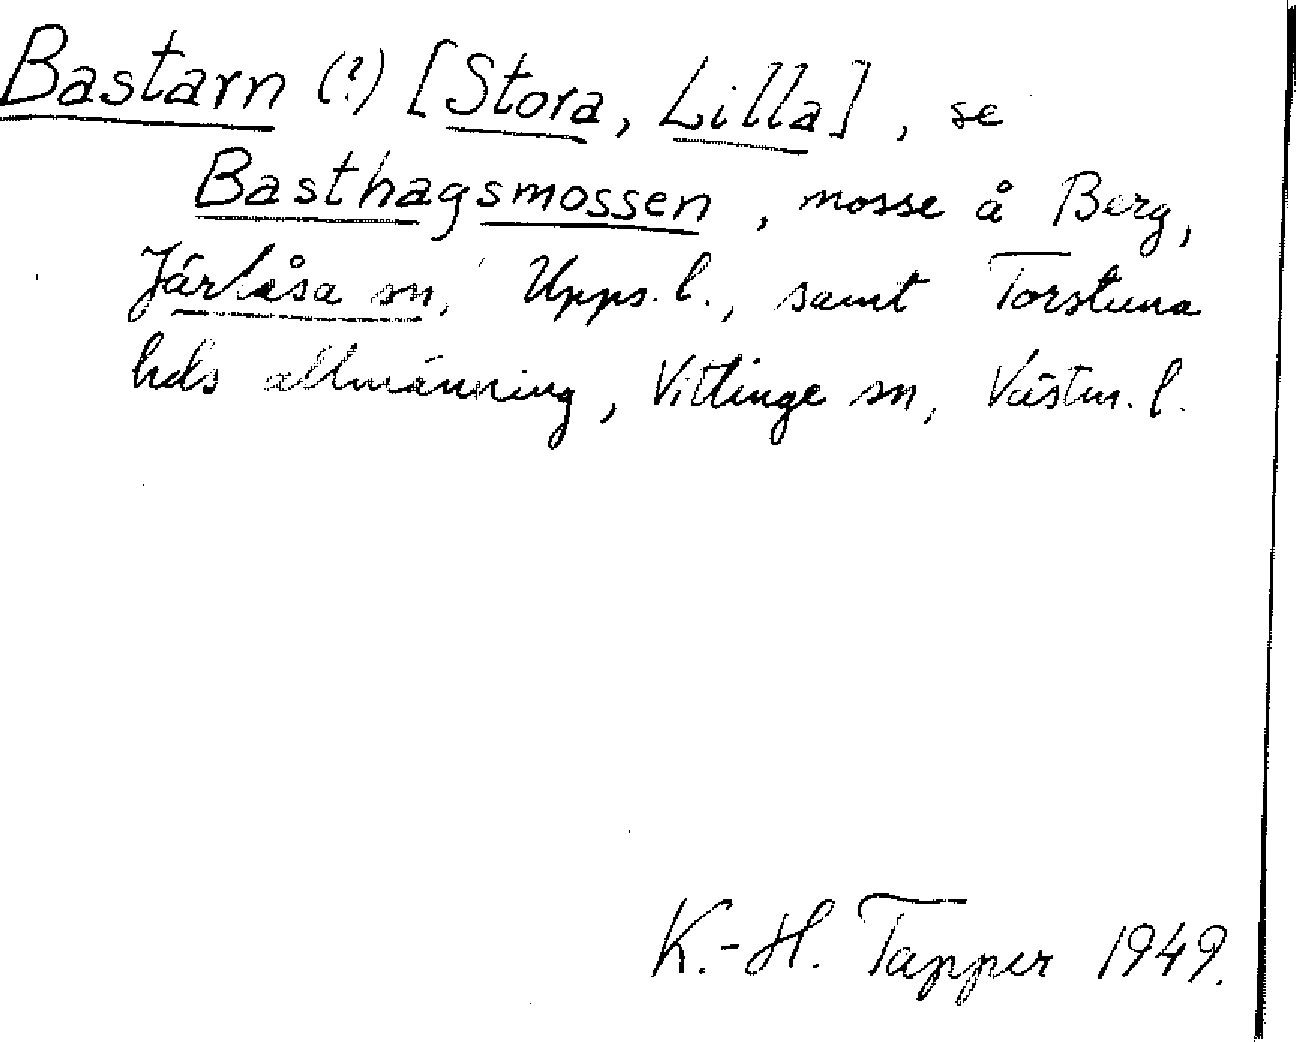 Bastarn (?) [Stora, Lilla], se
Basthagsmossen, mosse å Berg,
Järlåsa sn, Upps. l., samt Torstuna
hds allmänning, Vittinge sn, Västm. l.
K.-H. Tapper 1949.